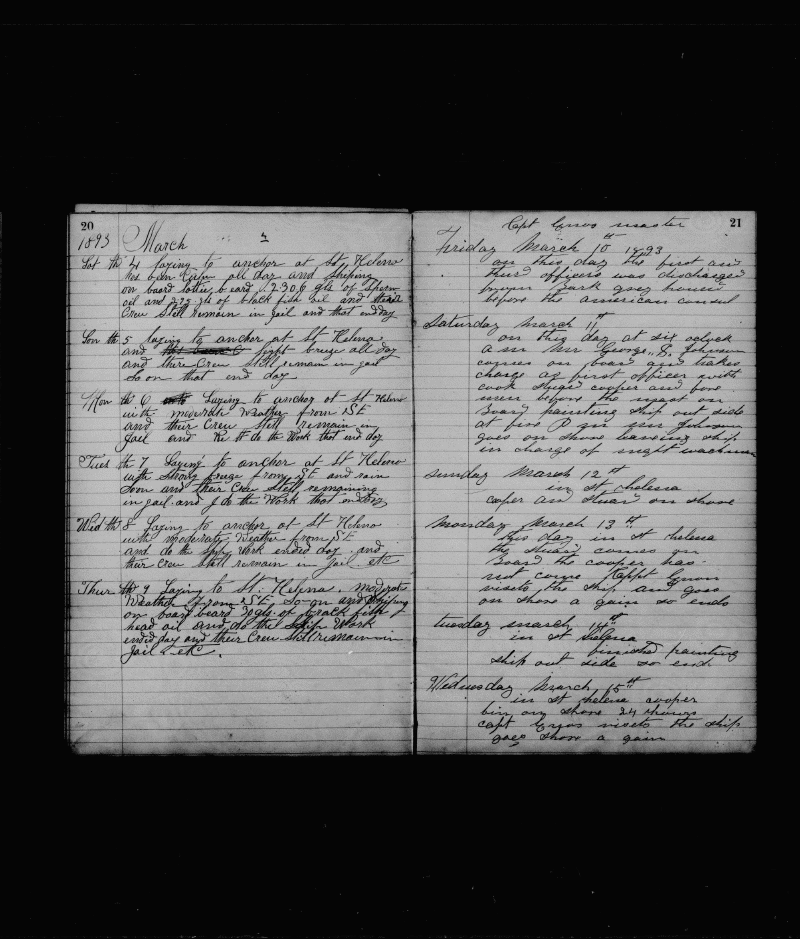 20
1893 March
Sat th 4 laying to anchor at St Helena
has been Calm all day and Shiping
on board 2306 gls of Sperm
oil and 272 gls of black fish oil and their
Crew Still remain in Jail and that end day
Son th 5 laying to anchor at St Helena
and light breeze all day
and there Crew Still remain in Jail
So on that end day
Mon th 6 Laying to anchor at St Helena
with moderate Weather from SE
and their Crew Still remain in
Jail and do the Work that end day
Tues th 7 Laying to anchor at St Helena
with Strong from SE and rain
Soon and their Crew Still remaining
in jail and do the Work that end day
Wed th 8 Laying to anchor at St Helena
with moderate Weather from SE
and do the Ships Work ended day and
their crew Still remain in Jail etc
Thur th 9 Laying to St Helena moderate
Weather from SE So on and Shiping
on board gls of black fish
head oil and do the Ship Work
ended day and their Crew Still remain in
Jail etc.
21
Capt master
Friday March 10th 1893
on this day the first and
third officers was discharged
Bark
before the american consul
Saturday March 11th
on this day at six oclock
a m Mr George Johnson
comes on board and takes
charge as first officer with
cook cooper and five
men before the mast on
Board painting ship out side
at five P m mr Johnson
goes on shore leaving ship
in charge of night watchman
Sunday March 12th
in St helena
cooper an Stuard on shore
Monday March 13th
this day in St helena
the Stuard comes on
Board the cooper has
not come Capt
visits the ship and goes
on shore a gain so ends
tuesday march 14th
in St helena
finished painting
ship out side so end
Wednesday March 15th
in St helena cooper
bin on shore 24 hours
capt visets the ship
goes shore a gain